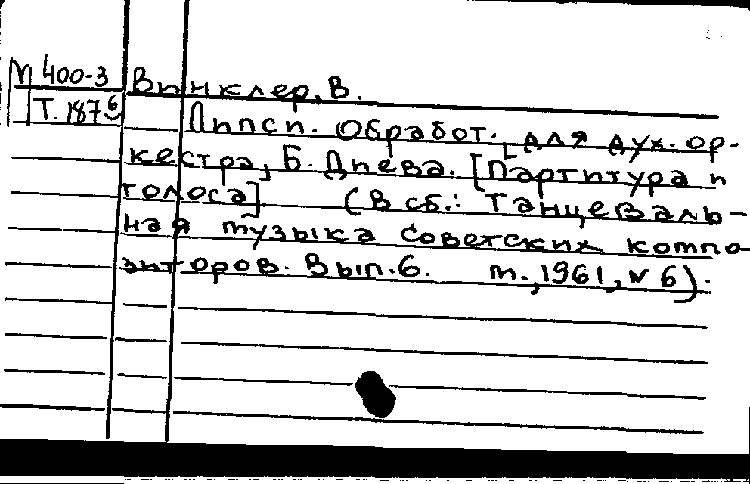 М 400-3 Винклер, В.
Т. 187б Липси. Обработ. [для дух. ор-
кестра] Б. Диева. [Партитура и
голоса] (В сб.: Танцеваль-
ная музыка советских компо
зиторов. Вып. 6. М., 1961, № 6).